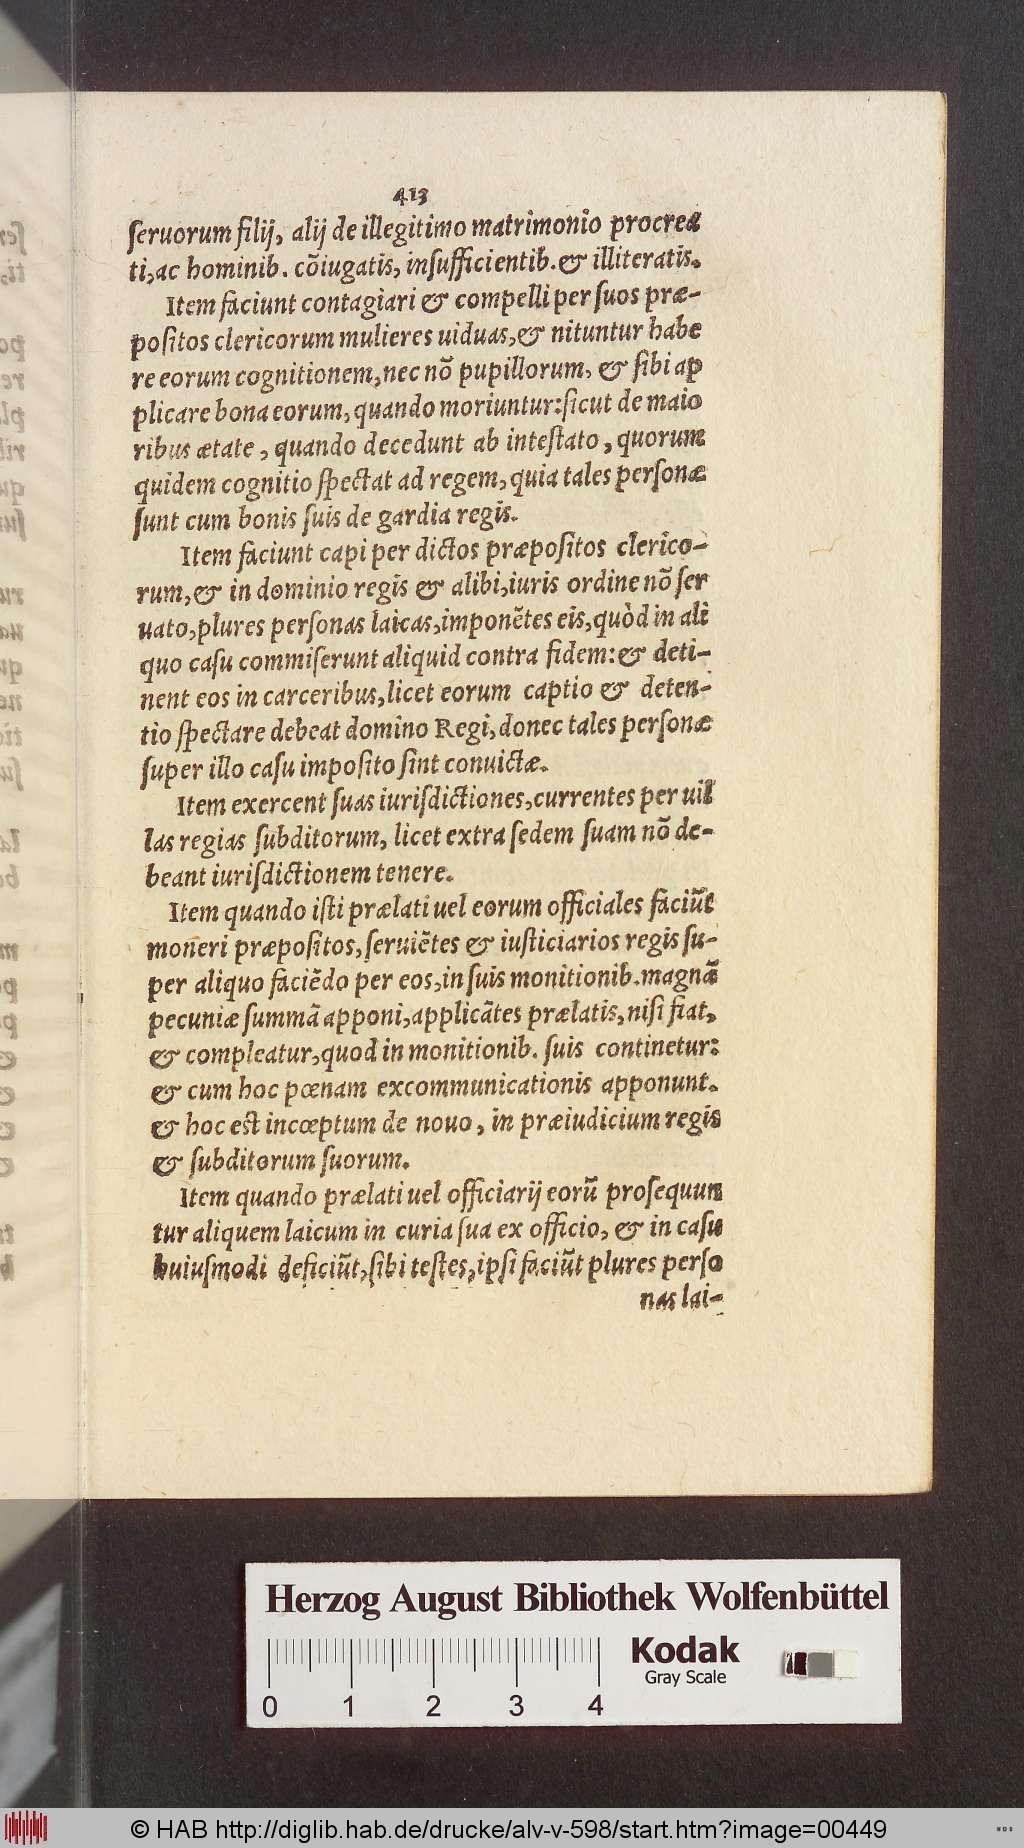 413
ſeruorum filij, alij de illegitimo matrimonio procrea
ti,ac hominib. cōiugatis, inſufficientib.& illiteratis.
Item faciunt contagiari & compelli per ſuos præ-
poſitos clericorum mulieres uiduas,& nituntur habe
re eorum cognitionem,nec nō pupillorum, & ſibi ap
plicare bona eorum,quando moriuntur:ſicut de maio
ribus ætate, quando decedunt ab inteſtato, quorum
quidem cognitio ſpectat ad regem,quia tales perſonæ
ſunt cum bonis ſuis de gardia regis.
Item faciunt capi per dictos præpoſitos clerico-
rum,& in dominio regis & alibi,iuris ordine nō ſer
uato,plures perſonas laicas,imponētes eis,quòd in ali
quo caſu commiſerunt aliquid contra fidem:& deti-
nent eos in carceribus,licet eorum captio & deten-
tio ſpectare debeat domino Regi,donec tales perſonæ
ſuper illo caſu impoſito ſint conuictæ.
Item exercent ſuas iuriſdictiones,currentes per uil
las regias ſubditorum, licet extra ſedem ſuam nō de-
beant iuriſdictionem tenere.
Item quando iſti prælati uel eorum officiales faciūt
moneri præpoſitos,ſeruiētes & iuſticiarios regis ſu-
per aliquo faciēdo per eos,in ſuis monitionib.magnā
pecuniæ ſummā apponi,applicātes prælatis,niſi fiat,
& compleatur,quod in monitionib. ſuis continetur:
& cum hoc pœnam excommunicationis apponunt.
& hoc est incœptum de nouo, in præiudicium regis
& ſubditorum ſuorum.
Item quando prælati uel officiarij eorū proſequun
tur aliquem laicum in curia ſua ex officio, & in caſu
huiuſmodi deficiūt,ſibi teſtes,ipſi faciūt plures perſo
nas lai-
Herzog August Bibliothek Wolfenbüttel
Kodak
Gray Scale
0 1 2 3 4
© HAB http://diglib.hab.de/drucke/alv-v-598/start.htm?image=00449